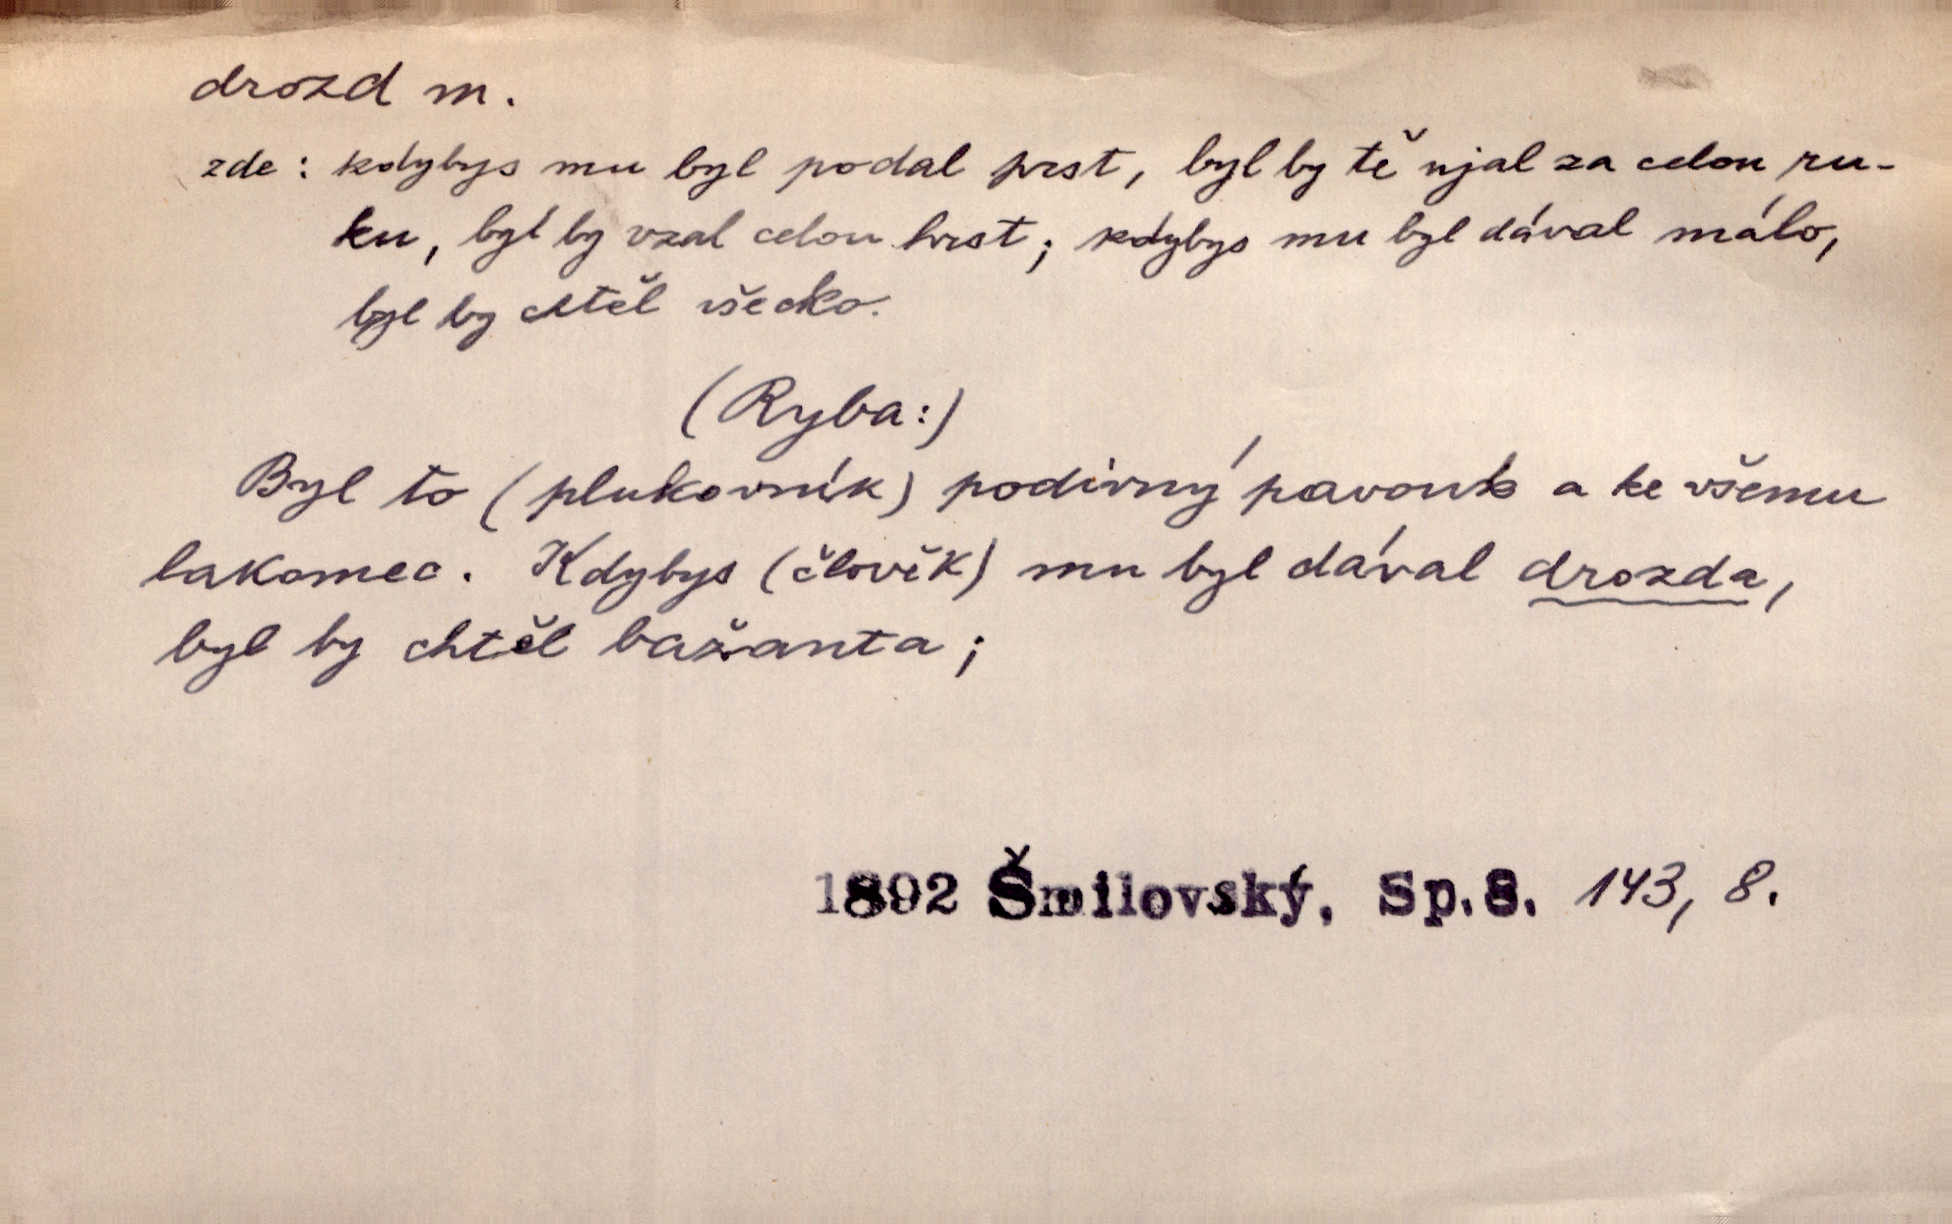 drozd m.
zde: kdybys mu byl podal prst, byl by tě ujal za celou ru-
ku, byl by vzal celou hrst; kdybys mu byl dával málo,
byl by chtěl všecko.
(Ryba:)
Byl to (plukovník) podivný pavouk a ke všemu
lakomec. Kdybys (člověk) mu byl dával drozda,
byl by chtěl bažanta;
1892 Šmilovský, Sp.8. 143, 8.